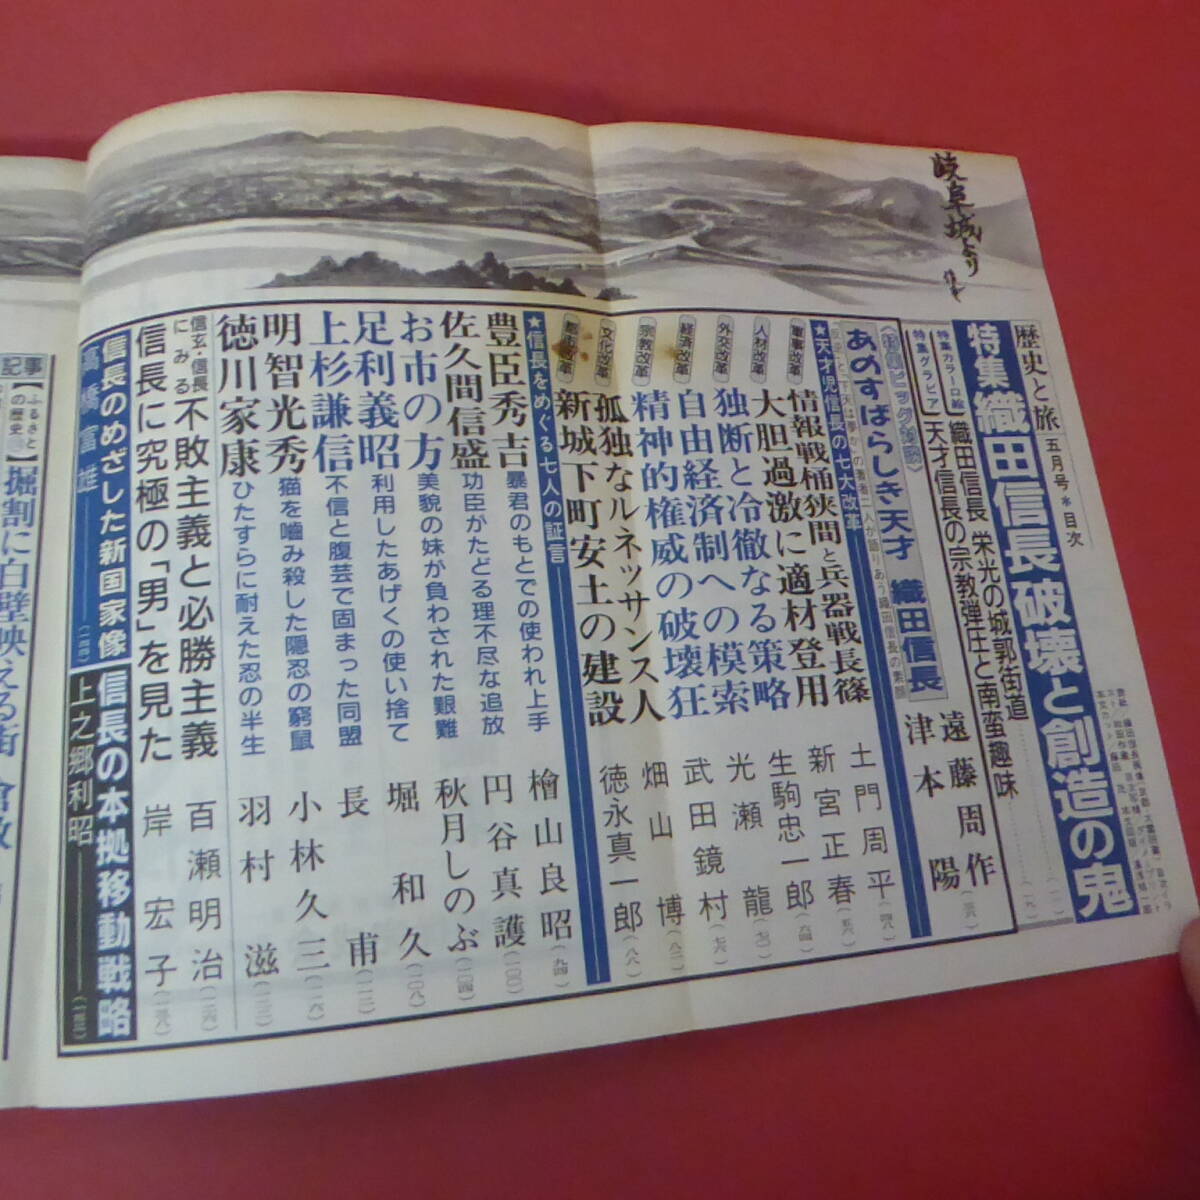 岐阜城より
歴史と旅 五月号＊目次
特集 織田信長 破壊と創造の鬼
特集カラー口絵 織田信長 栄光の城郭街道
特集グラビア 天才信長の宗教弾圧と南蛮趣味
あのすばらしき天才 織田信長
遠藤周作
津本陽
★天才児信長の七大改革
軍事改革 情報戦桶狭間と兵器戦長篠 土門周平
人材改革 大胆過激に適材登用 新宮正春
外交改革 独断と冷徹なる策略 生駒忠一郎
経済改革 自由経済制への模索 光瀬龍
宗教改革 精神的権威の破壊狂 武田鏡村
文化改革 孤独なルネッサンス人 畑山博
新城下町安土の建設 徳永真一郎
★信長をめぐる七人の証言
豊臣秀吉 暴君のもとでの使われ上手 檜山良昭
佐久間信盛 功臣がたどる理不尽な追放 円谷真護
お市の方 美貌の妹が負わされた艱難 秋月しのぶ
足利義昭 利用したあげくの使い捨て 堀和久
上杉謙信 不信と腹芸で固まった同盟 長甫
明智光秀 猫を嚙み殺した隠忍の窮鼠 小林久三
徳川家康 ひたすらに耐えた忍の半生 羽村滋
信玄・信長にみる 不敗主義と必勝主義 百瀬明治
信長に究極の「男」を見た 岸宏子
信長のめざした新国家像
高橋富雄
信長の本拠移動戦略
上之郷利昭
記事